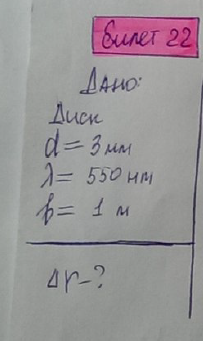 Билет 22
Дано:
Диск
d = 3 мм
λ = 550 нм
b = 1 м
Δr - ?